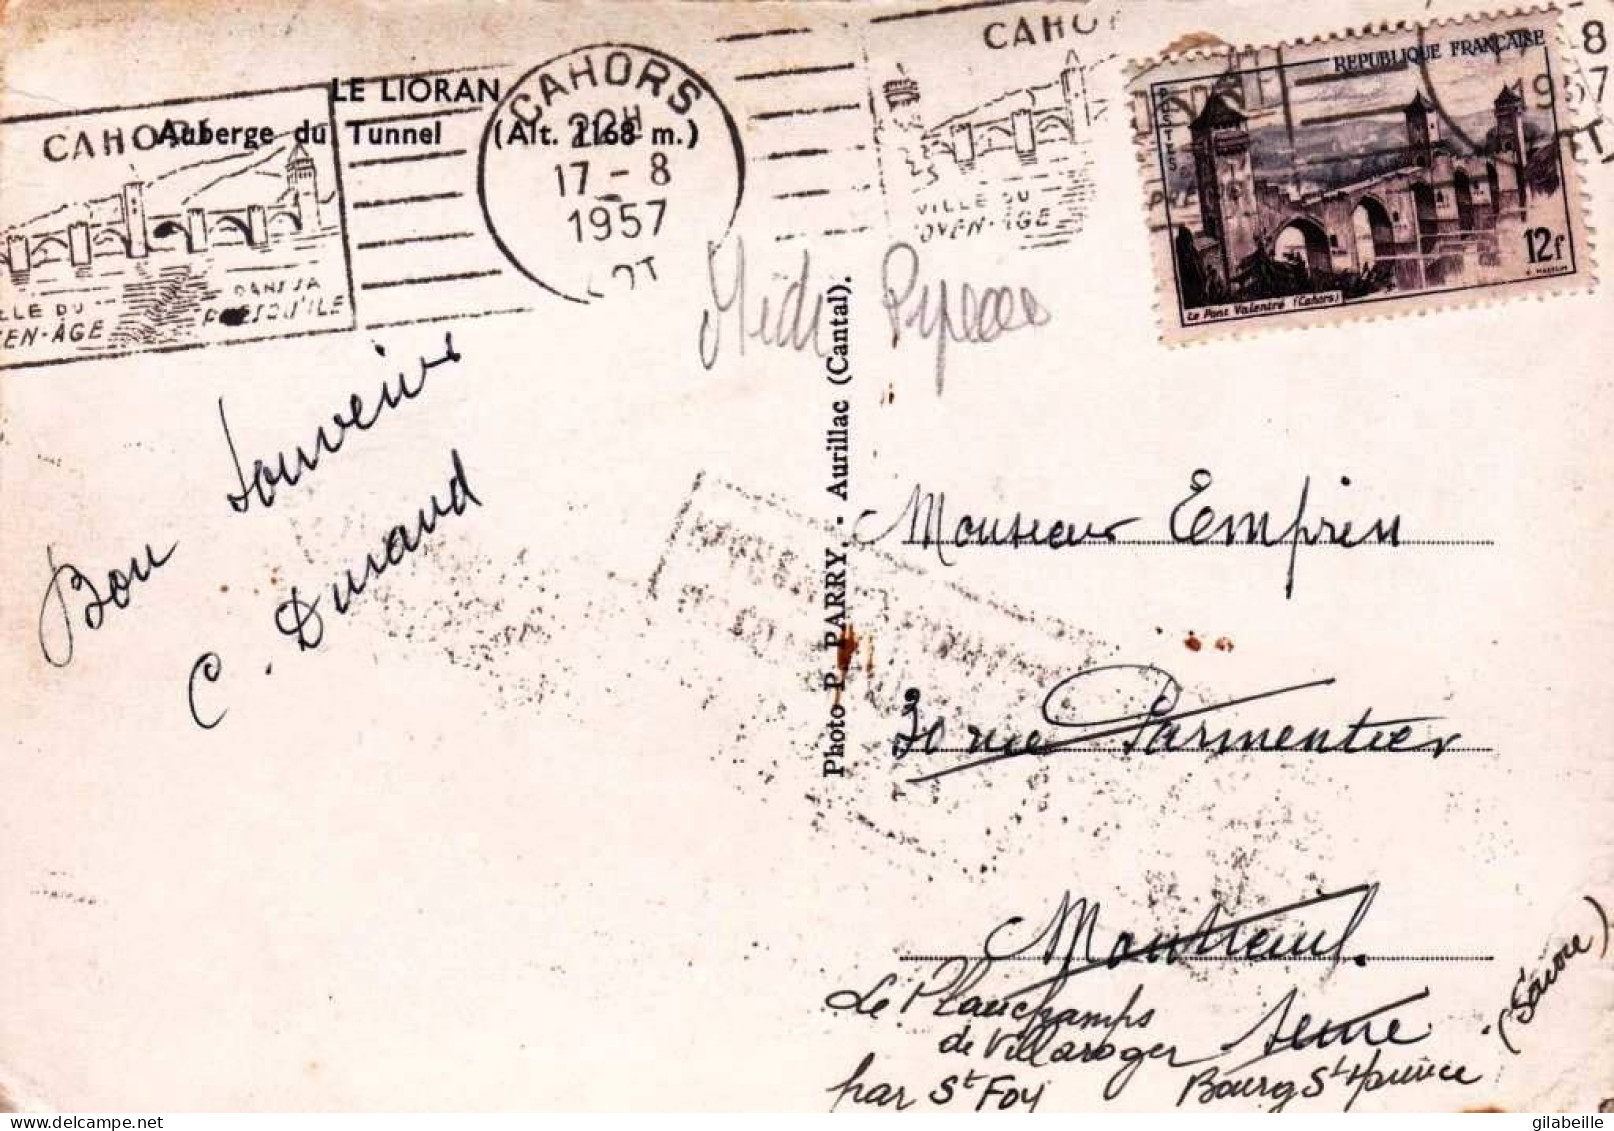 LE LIORAN
Auberge du Tunnel (Alt. 1168 m.)
CAHORS
20H
17 - 8
1957
LOT
CAHORS
DANS SA
PRESQU'ILE
CAHO
VILLE DU
OYEN-ÂGE
8
1957
REPUBLIQUE FRANÇAISE
POSTES
12f
Le Pont Valentré (Cahors)
Midi Pyrénées
Bon souvenir
C. Durand
Photo P. PARRY. - Aurillac (Cantal).
Monsieur Emprin
30 rue Parmentier
Montreuil.
Seine
Le Planchamps
de Villaroger
par St Foy
Bourg St Maurice
(Savoie)
gilabeille